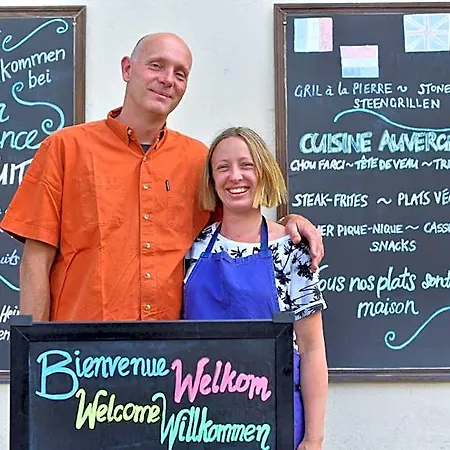 kommen
bei
GRIL à la PIERRE ~ STONE
STEENGRILLEN
CUISINE AUVERG
CHOU FARCI ~ TÊTE DE VEAU ~ TRI
STEAK-FRITES ~ PLATS VÉG
PIQUE-NIQUE ~ CASS
SNACKS
nos plats sont
maison
Bienvenue Welkom
Welcome Willkommen